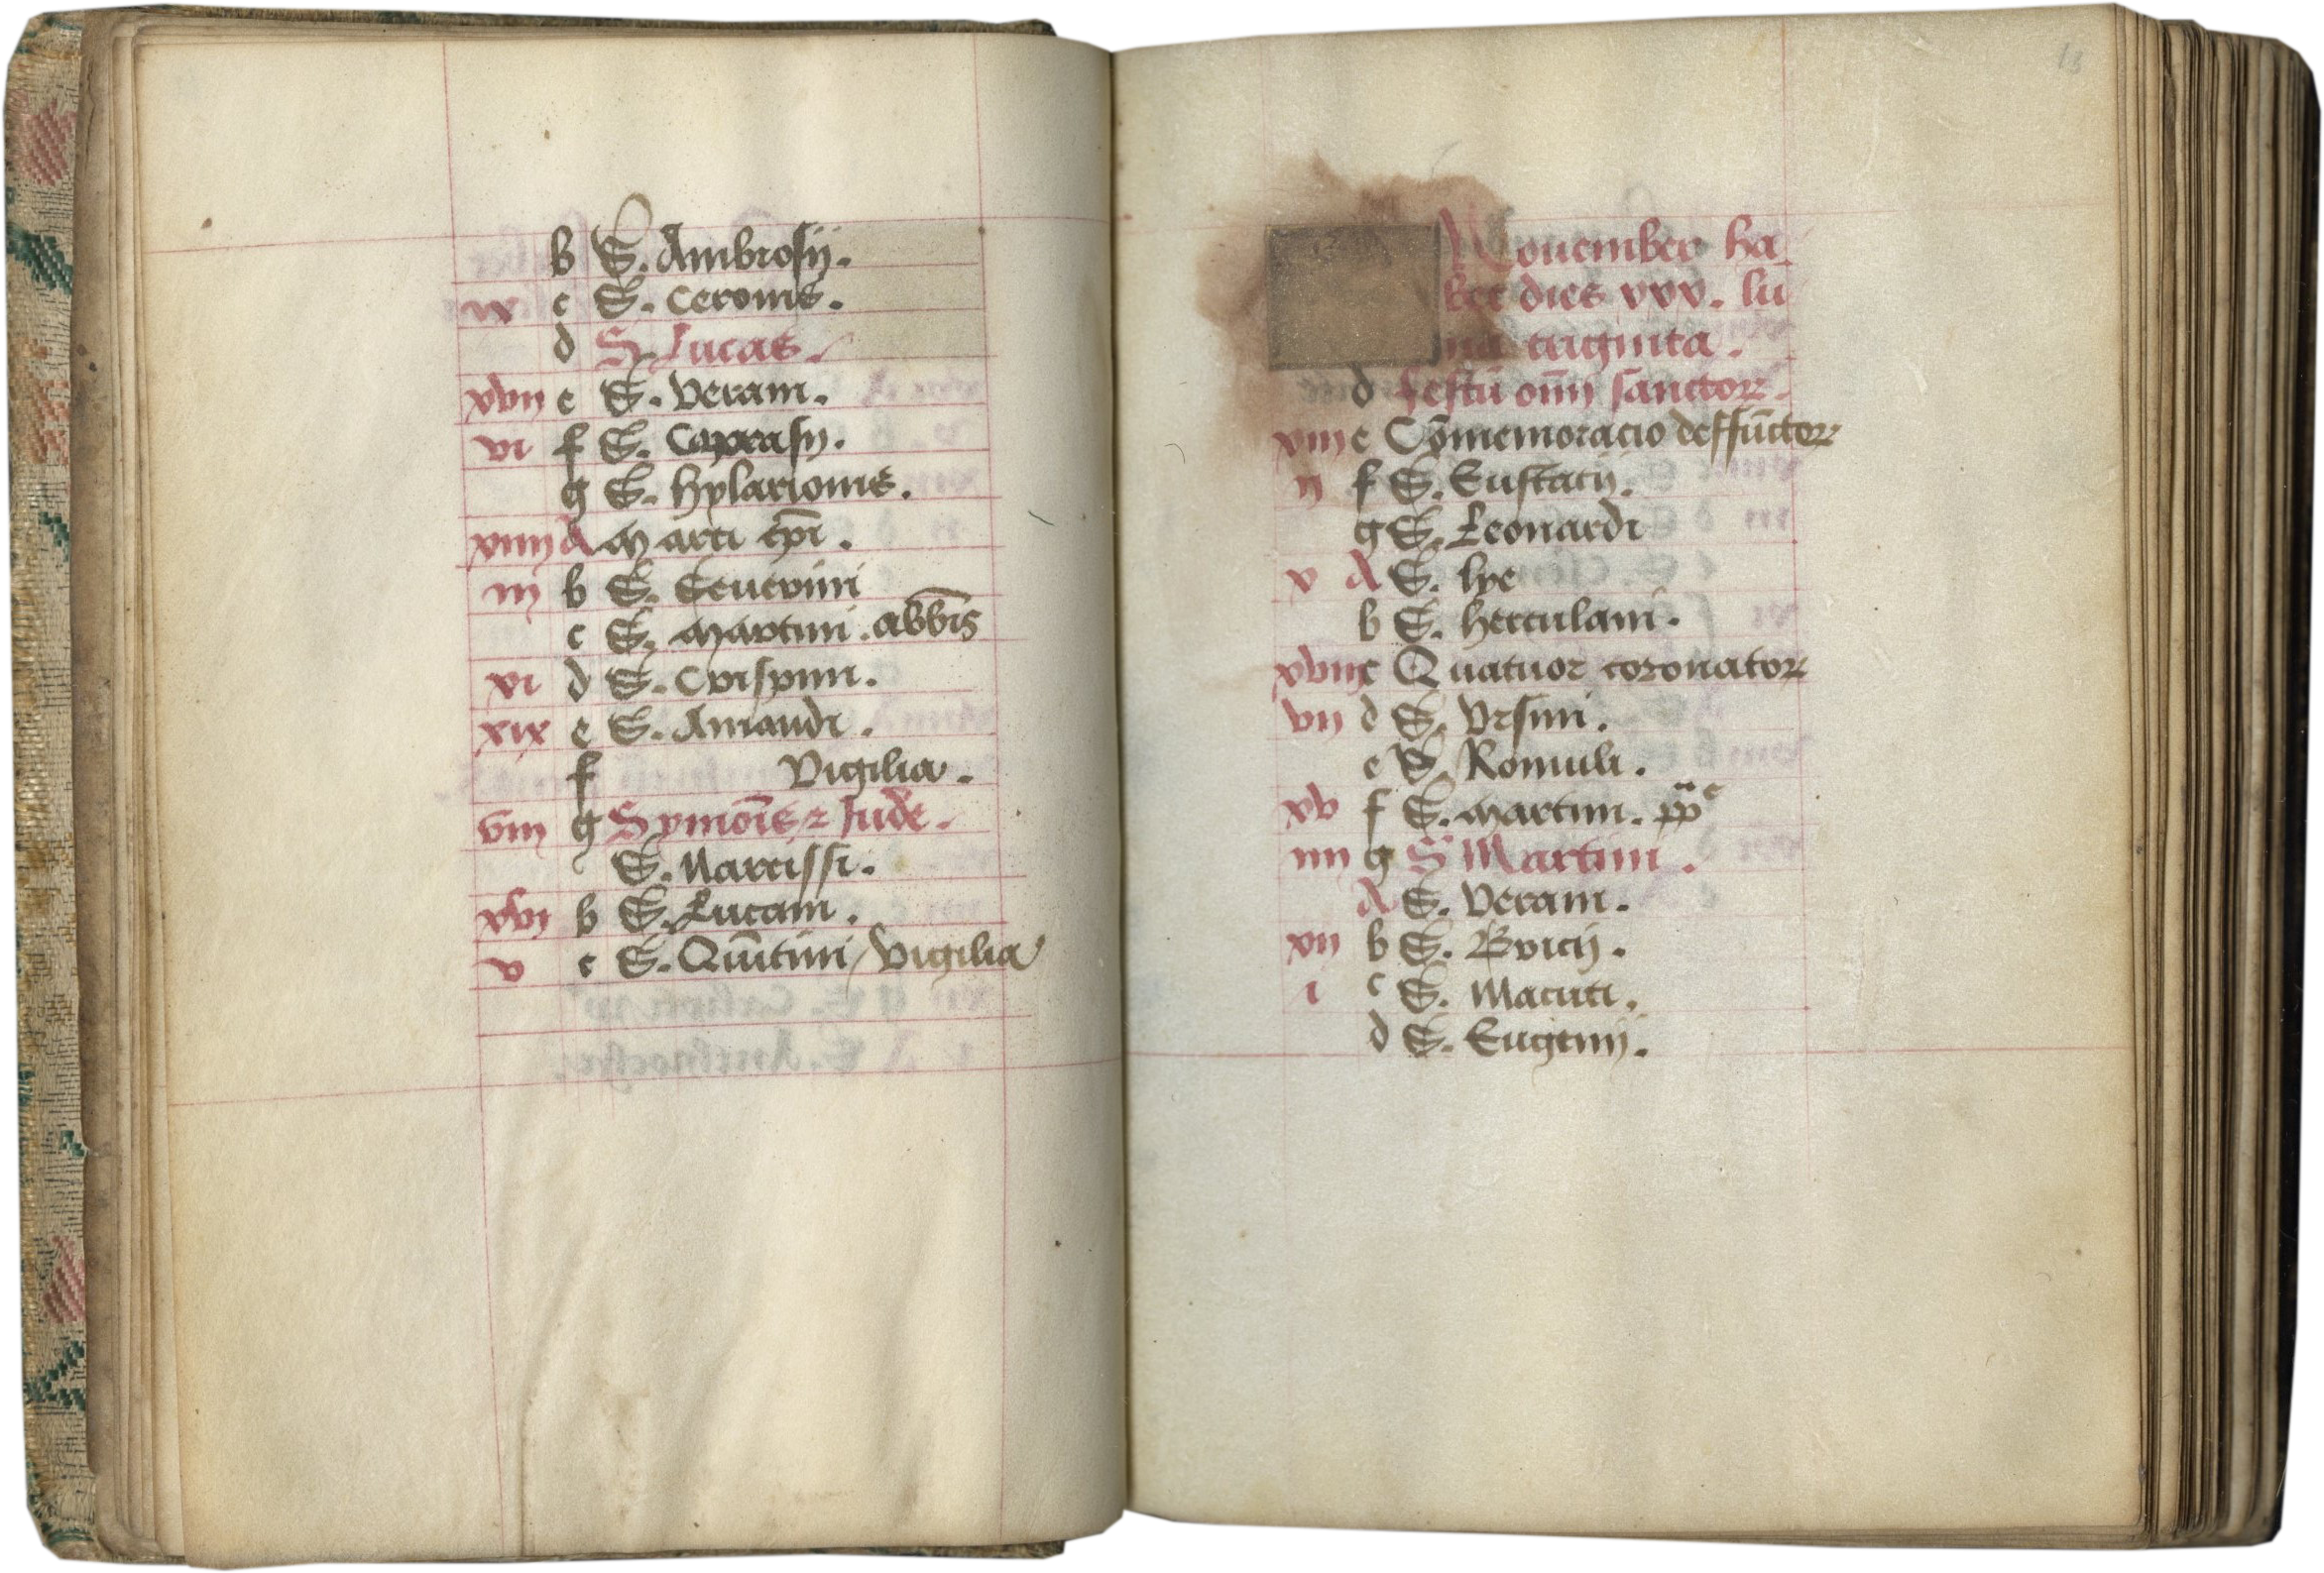 b S. Ambrosij.
ix c S. Ceronis.
d S. Lucas.
xvij e S. Verani.
vi f S. Caprasij.
g S. hylarionis.
xiiij A Marci epī.
iij b S. Seuerini
c S. Martini. abb̄is
vi d S. Crispini.
xix e S. Amandi.
f Vigilia.
viij g Symōis ⁊ Jude.
S. Narcissi.
xvi b S. Lucani.
v c S. Quītini / Vigilia
13
Nouember ha
bet dies xxx. lu
na triginta.
d festū oīm sanctoꝝ.
xiij e Cōmemoracio deffūctoꝝ
ij f S. Eustacij.
g S. Leonardi
v A S. lye
b S. herculani.
xviij c Quatuor coronatoꝝ
vij d S. Vrsini.
e S. Romuli.
xv f S. Martini. pp̄e
iiij g S. Martini.
A S. Verani.
xij b S. Bricij.
i c S. Macuti.
d S. Eugenij.